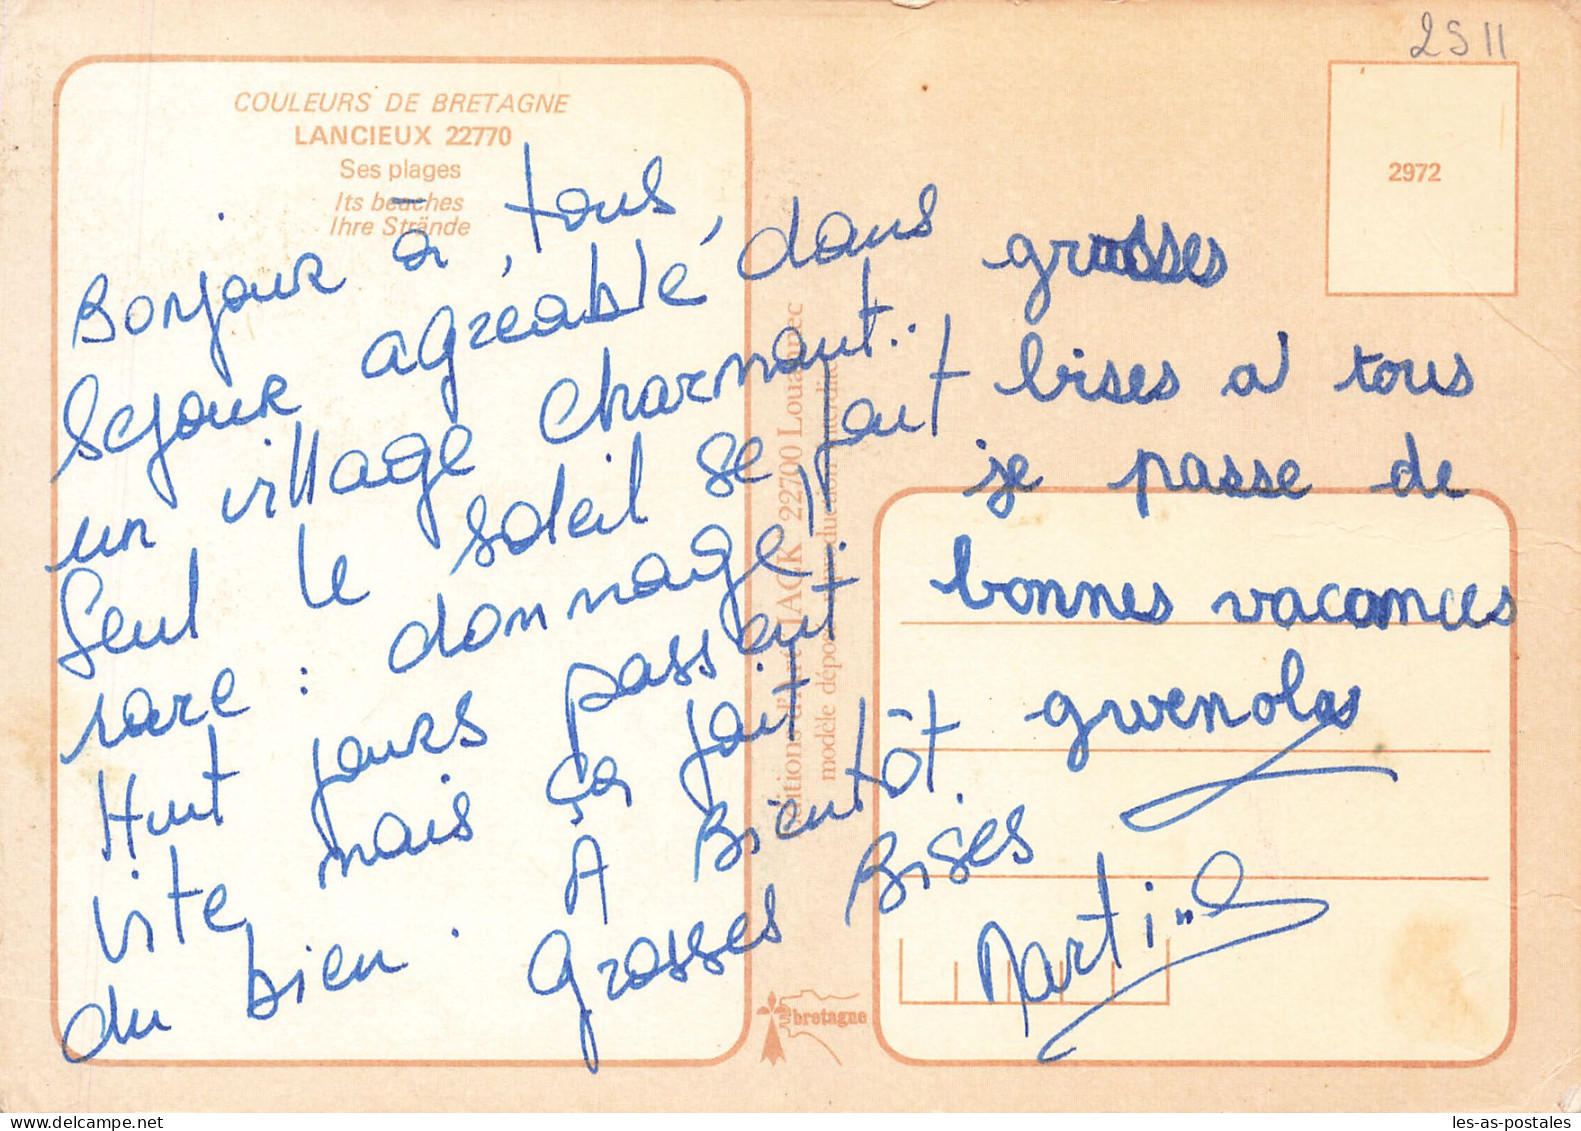 2511
COULEURS DE BRETAGNE
LANCIEUX 22770
Ses plages
Its beaches
Ihre Strände
2972
Bonjour à tous,
Séjour agréable dans
un village charmant..
Seul le soleil se fait
rare : dommage !
Huit jours passent
vite mais ça fait
du bien. A Bientôt.
Grosses Bises
grosses
bises a tous
je passe de
bonnes vacances
gwenolas
Martine
Editions d'Art JACK 22700 Louannec
modèle déposé reproduction interdite
bretagne
les-as-postales